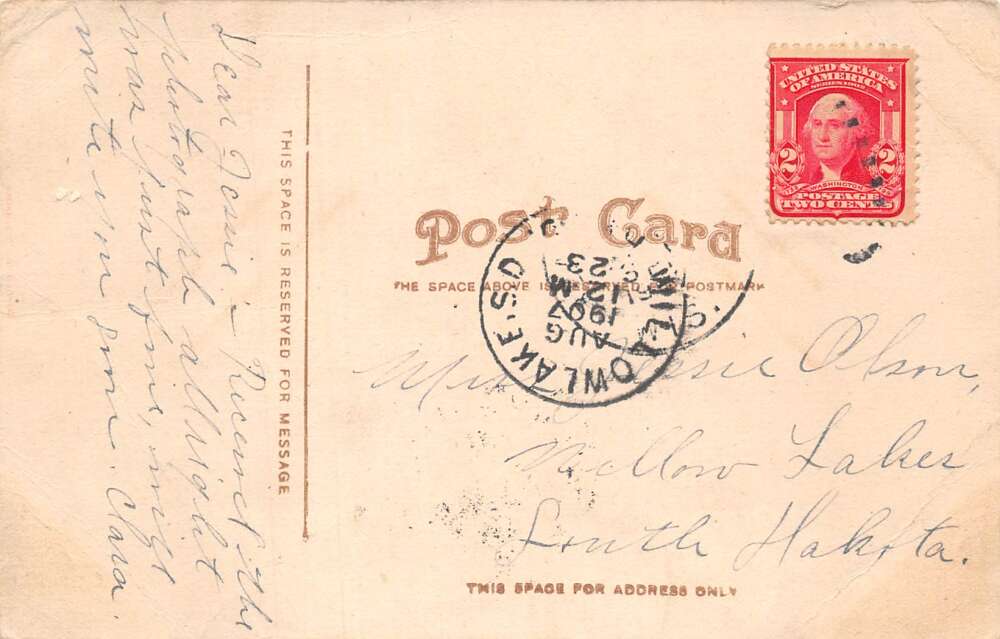 Dear Jessie - Received the
photograph allright
was just fine, might
write you some. Clara.
THIS SPACE IS RESERVED FOR MESSAGE
UNITED STATES
OF AMERICA
SERIES 1902
2 2
WASHINGTON
POSTAGE
TWO CENTS
Post Card
THE SPACE ABOVE IS RESERVED FOR POSTMARK
WILLOW LAKE S.D.
AUG
23
12 M
1907
Miss Jessie Olson,
Willow Lakes
South Dakota.
THIS SPACE FOR ADDRESS ONLY